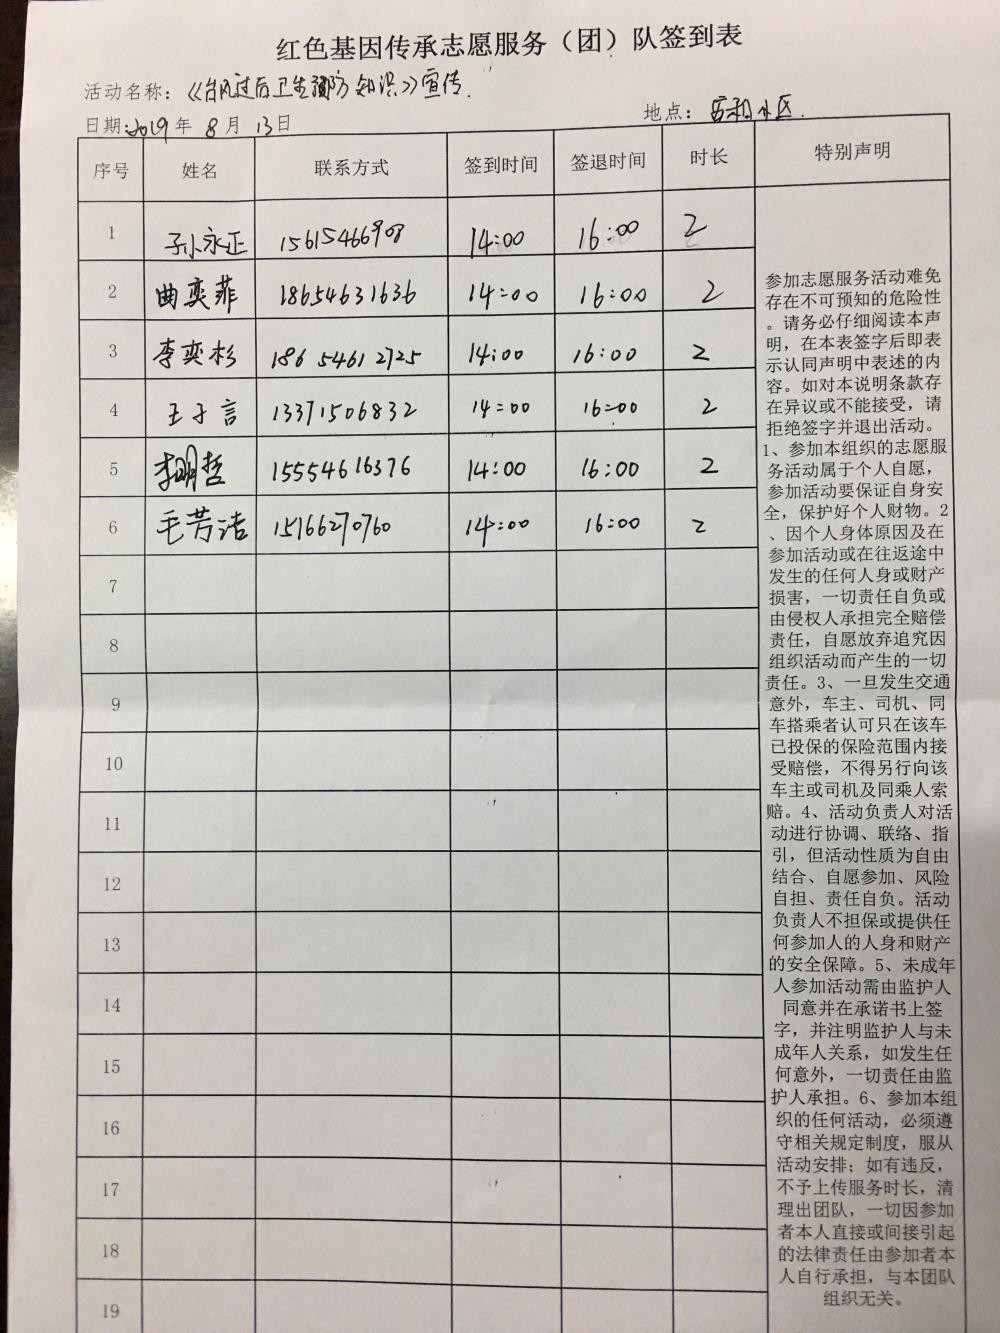 红色基因传承志愿服务（团）队签到表
活动名称：《台风过后卫生预防知识》宣传.
日期:2019年 8月 13日
地点：安和小区.
序号 姓名 联系方式 签到时间 签退时间 时长 特别声明
1 孙永正 15615466908 14:00 16:00 2
2 曲奕菲 18654631636 14:00 16:00 2
3 李奕杉 186 5461 2725 14:00 16:00 2
4 王于言 13371506832 14:00 16:00 2
5 李明哲 15554616376 14:00 16:00 2
6 毛芳洁 15166270760 14:00 16:00 2
7
8
9
10
11
12
13
14
15
16
17
18
19
参加志愿服务活动难免
存在不可预知的危险性
。请务必仔细阅读本声
明，在本表签字后即表
示认同声明中表述的内
容。如对本说明条款存
在异议或不能接受，请
拒绝签字并退出活动。
1、参加本组织的志愿服
务活动属于个人自愿，
参加活动要保证自身安
全，保护好个人财物。2
、因个人身体原因及在
参加活动或在往返途中
发生的任何人身或财产
损害，一切责任自负或
由侵权人承担完全赔偿
责任，自愿放弃追究因
组织活动而产生的一切
责任。3、一旦发生交通
意外，车主、司机、同
车搭乘者认可只在该车
已投保的保险范围内接
受赔偿，不得另行向该
车主或司机及同乘人索
赔。4、活动负责人对活
动进行协调、联络、指
引，但活动性质为自由
结合、自愿参加、风险
自担、责任自负。活动
负责人不担保或提供任
何参加人的人身和财产
的安全保障。5、未成年
人参加活动需由监护人
同意并在承诺书上签
字，并注明监护人与未
成年人关系，如发生任
何意外，一切责任由监
护人承担。6、参加本组
织的任何活动，必须遵
守相关规定制度，服从
活动安排；如有违反，
不予上传服务时长，清
理出团队，一切因参加
者本人直接或间接引起
的法律责任由参加者本
人自行承担，与本团队
组织无关。